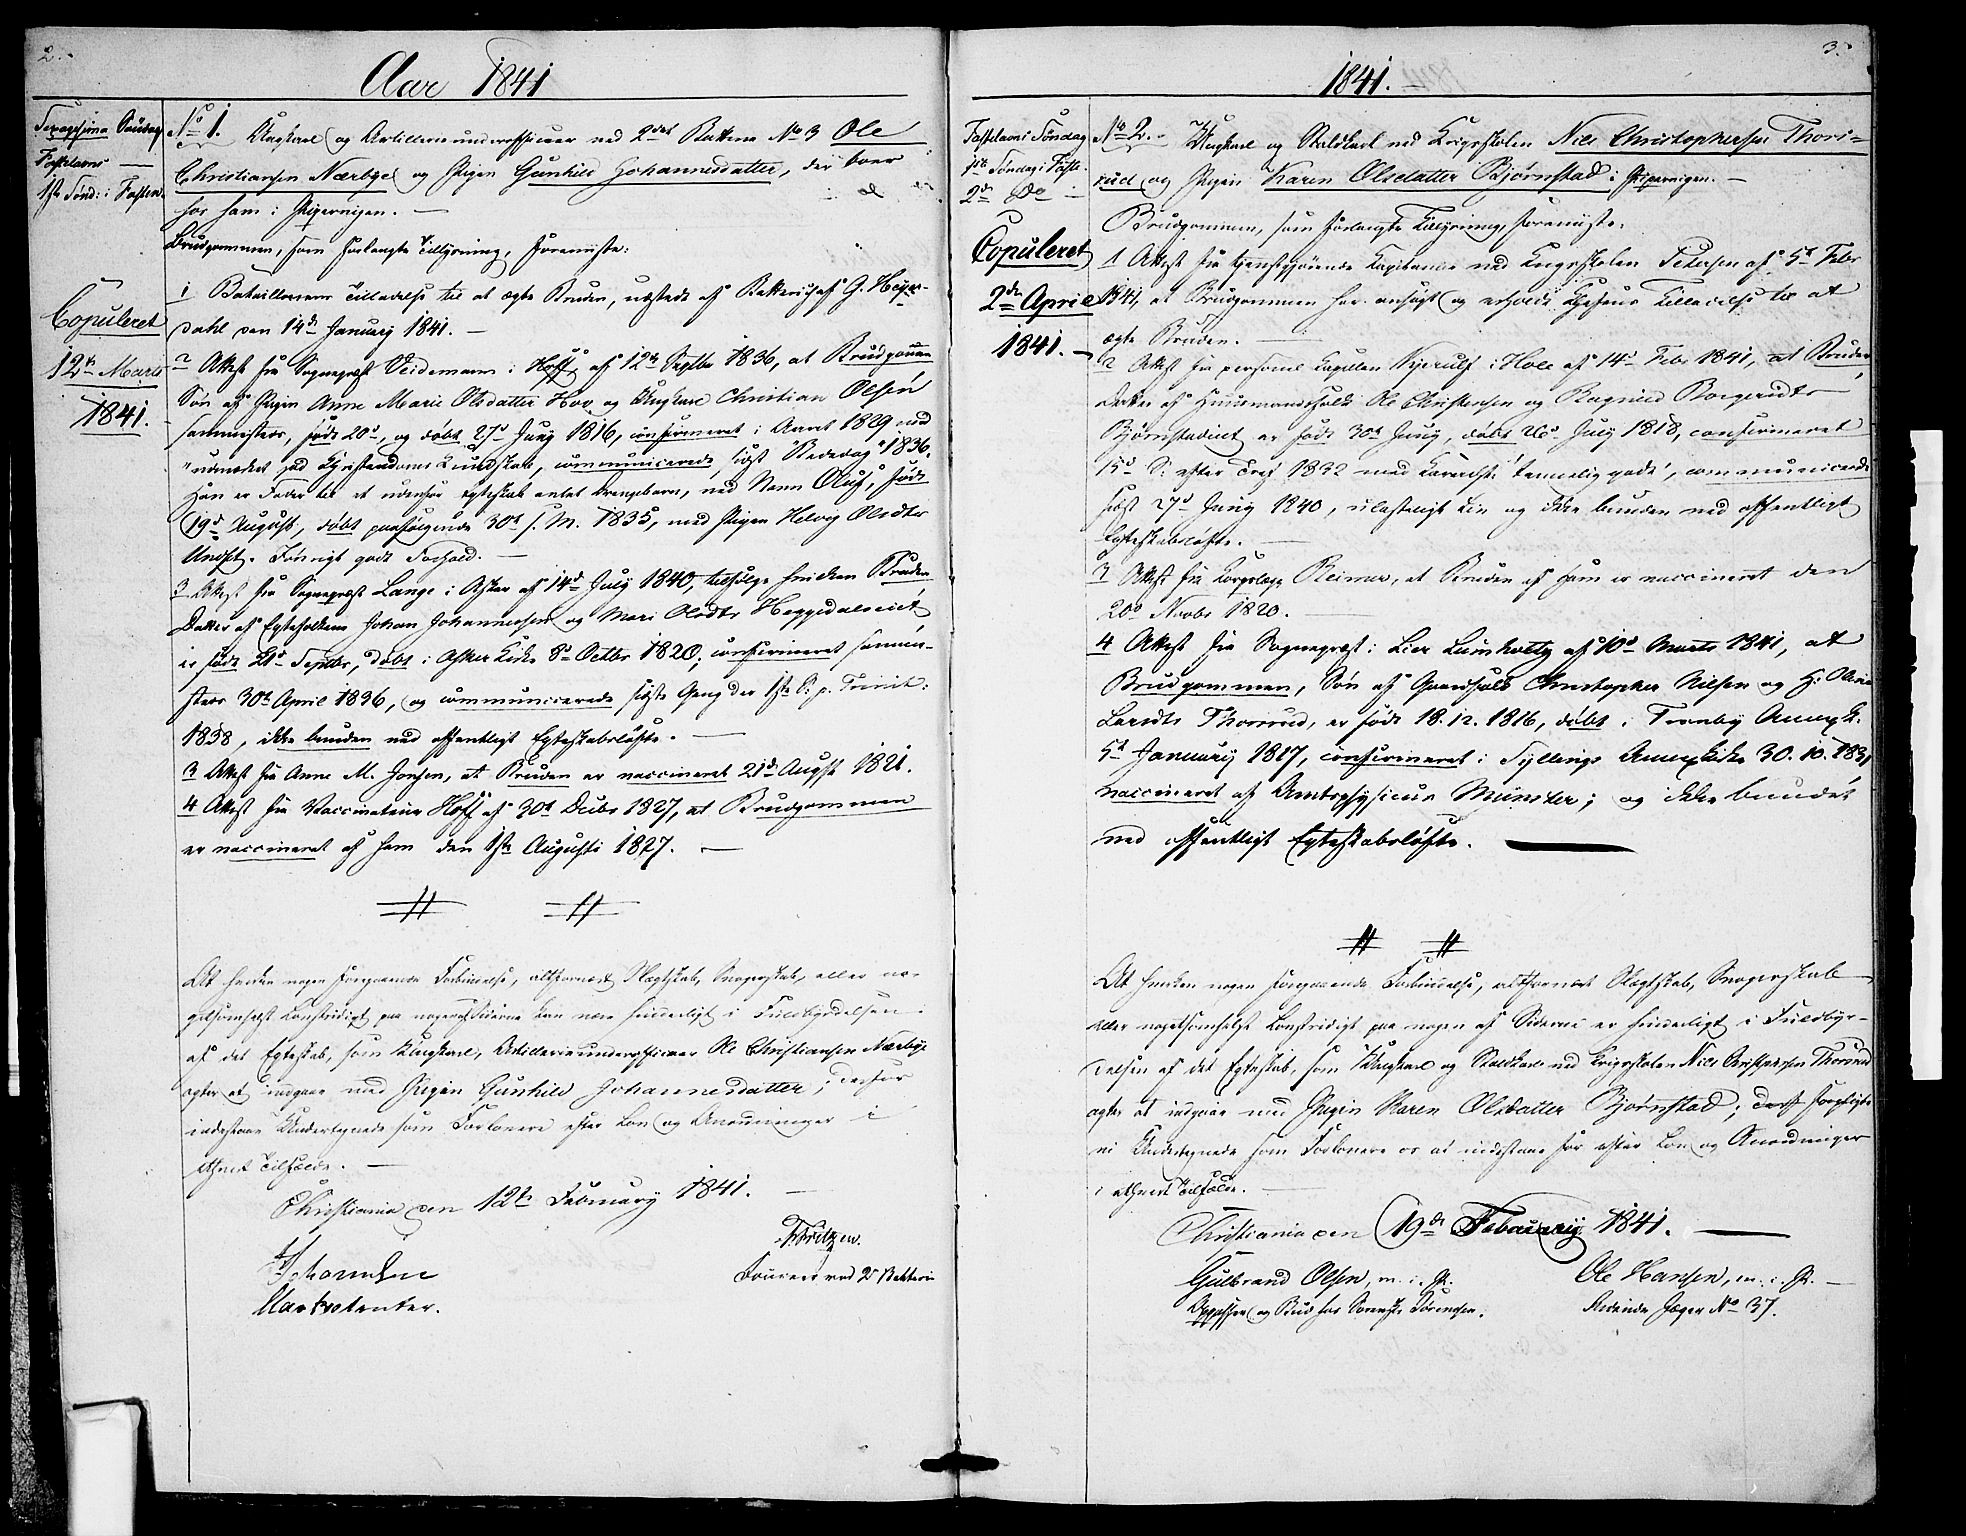 2.
Aar 1841
Sexagesima Søndag
Fastelavns —
1ste Sønd. i Fasten.
Copuleret
12te Marts
1841.
No 1. Ungkarl og Artillerieunderofficeer ved 2det Batterie No 3 Ole
Christiansen Nærbye og Pigen Gunhild Johannesdatter, der boer
hos ham i Pipervigen. —
Brudgommen, som forlangte Tillysning, foreviiste:
1 Bataillonens Tilladelse til at ægte Bruden, udstedt af G. Heyer-
dahl den 14de January 1841. —
2 Attest fra Sognepræst Veidemann i Hoff af 12te Septbr 1836, at Brudgommen
Søn af Pigen Anne Marie Olsdatter Hov og Ungkarl Christian Olsen
sammesteds, født 20de, og døbt 27de Juny 1816, confirmeret i Aaret 1829 med
"udmærket god Christendoms Kundskab, communicerede sidst Bededag 1836.
Han er Fader til et udenfor Egteskab avlet Drengebarn, ved Navn Oluf, født
19de August, døbt paafølgende 30te s. M. 1835, med Pigen Helvig Olsdtr
Undset. Iøvrigt godt Forhold. —
3 Attest fra Sognepræst Lange i Asker af 14de July 1840, ifølge hvilken Bruden
Datter af Egtefolkene Johan Johannessen og Mari Olsdtr Heggedalseiet
er født 21de Septbr, døbt i Asker Kirke 8de Octbr 1820, confirmeret sammen-
steds 30te April 1836, og communicerede sidste Gang der 1ste S. p. Trinit:
1838, ikke bunden ved offentligt Egteskabsløfte. —
3 Attest fra Anne M. Jonsen, at Bruden er vaccineret 21de August 1821.
4 Attest fra Vaccinateur Hoff af 30te Decbr 1827, at Brudgommen
er vaccineret af ham den 1ste Augusti 1827. —
At hverken nogen foregaaende Forbindelse, altfornær Slægtskab, Svogerskab, eller no-
getsomhelst Lovstridigt paa nogen af Siderne kan være hinderligt i Fuldbyrdelsen
af det Egteskab, som Ungkarl, Artillerieunderofficeer Ole Christiansen Nærbye
agter at indgaae med Pigen Gunhild Johannesdatter; derfor
indestaae Undertegnede som Forlovere efter Lov og Anordninger i
ethvert Tilfælde. —
Christiania den 12te February 1841. —
Marketenter.
Fourer ved 2det Batterie
3.
1841.
Fastelavns Søndag
1ste Søndag i Faste
2den Do —
Copuleret
2den April
1841. —
No 2. Ungkarl og Staldkarl ved Krigsskolen Niels Christophersen Thors-
rud og Pigen Karen Olsdatter Bjørnstad i Pipervigen. —
Brudgommen, som forlangte Tillysning, foreviiste:
1 Attest fra tjenstgjørende Kapitaine ved Krigsskolen Petersen af 5te Febr
1841, at Brudgommen har ansøgt og erholdt Chefens Tilladelse til at
ægte Bruden. —
2 Attest fra personel Kapellan Kjerulf i Hole af 14de Febr 1841, at Bruden,
Datter af Huusmandsfolk Ole Christensen og Ragnild Borgersdtr
Bjørnstadeiet er født 30te Juny, døbt 26de July 1818, confirmeret
15de S: efter Tref. 1832 med Karacht: 'temmelig godt', communicerede
sidst 27de Juny 1840, ulasteligt Liv og ikke bunden ved offentligt
Egteskabsløfte. —
3 Attest fra Corpslæge Reimer, at Bruden af ham er vaccineret den
20de Novbr 1820. —
4 Attest fra Sognepræst i Lier Lumholtz af 10de Marts 1841, at
Brudgommen, Søn af Gaardfolk Christopher Nilsen og H: Olivia
Larsdtr Thorsrud, er født 18.12.1816, døbt i Tranby Annexk.
5te January 1817, confirmeret i Syllings Annexkirke 30.10.1831
vaccineret af Amtsphysicus Münster; og ikke bundet
ved offentligt Egteskabsløfte. —
At hverken nogen foregaaende Forbindelse, altfornær Slægtskab, Svogerskab
eller nogetsomhelst Lovstridigt paa nogen af Siderne er hinderligt i Fuldbyr-
delsen af det Egteskab, som Ungkarl og Staldkarl ved Krigsskolen Niels Christophersen Thorsrud
agter at indgaae med Pigen Karen Olsdatter Bjørnstad; derfor forpligte
vi Undertegnede som Forlovere os at indestaae for efter Lov og Anordninger
i ethvert Tilfælde. —
Christiania den 19de February 1841. —
Gulbrand Olsen, m. i. P.
Ole Hansen, m. i. P. —
Opasser og Bud hos Sørensen.
Ridende Jæger No 37.